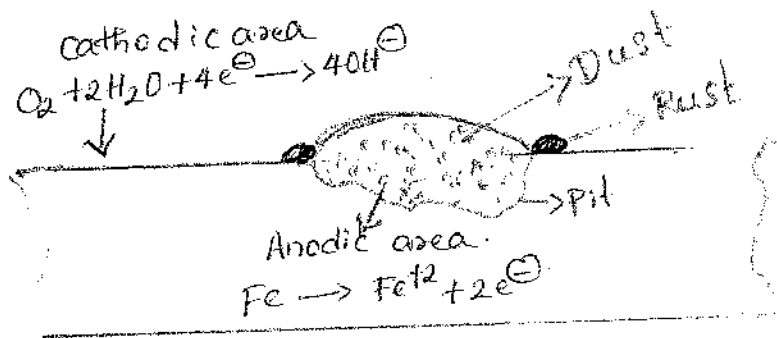 Cathodic area
O₂ + 2H₂O + 4e⊖ → 4OH⊖
Dust
Rust
Pit
Anodic area.
Fe → Fe⁺² + 2e⊖